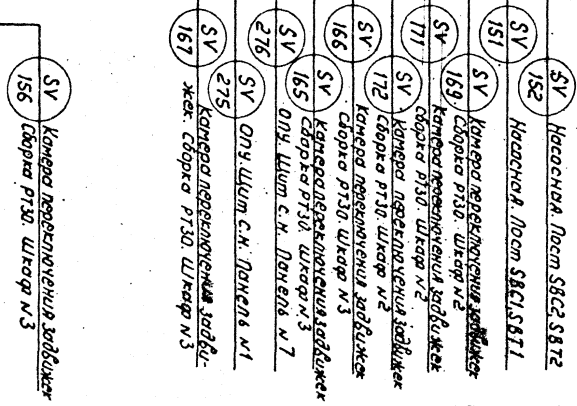 SV
152
Насосная. Пост SBC2, SBT2
SV
151
Насосная. Пост SBC1, SBT1
SV
169
Камера переключения задвижек
Сборка РТ30. Шкаф N2
SV
171
Камера переключения задвижек
Сборка РТ30. Шкаф N2
SV
172
Камера переключения задвижек
Сборка РТ30. Шкаф N2
SV
166
Камера переключения задвижек
Сборка РТ30. Шкаф N3
SV
165
Камера переключения задвижек
Сборка РТ30. Шкаф N3
SV
276
ОПУ. Щит с.н. Панель N7
SV
275
ОПУ. Щит с.н. Панель N1
SV
167
Камера переключения задви-
жек. Сборка РТ30. Шкаф N3
SV
156
Камера переключения задвижек
Сборка РТ30. Шкаф N3